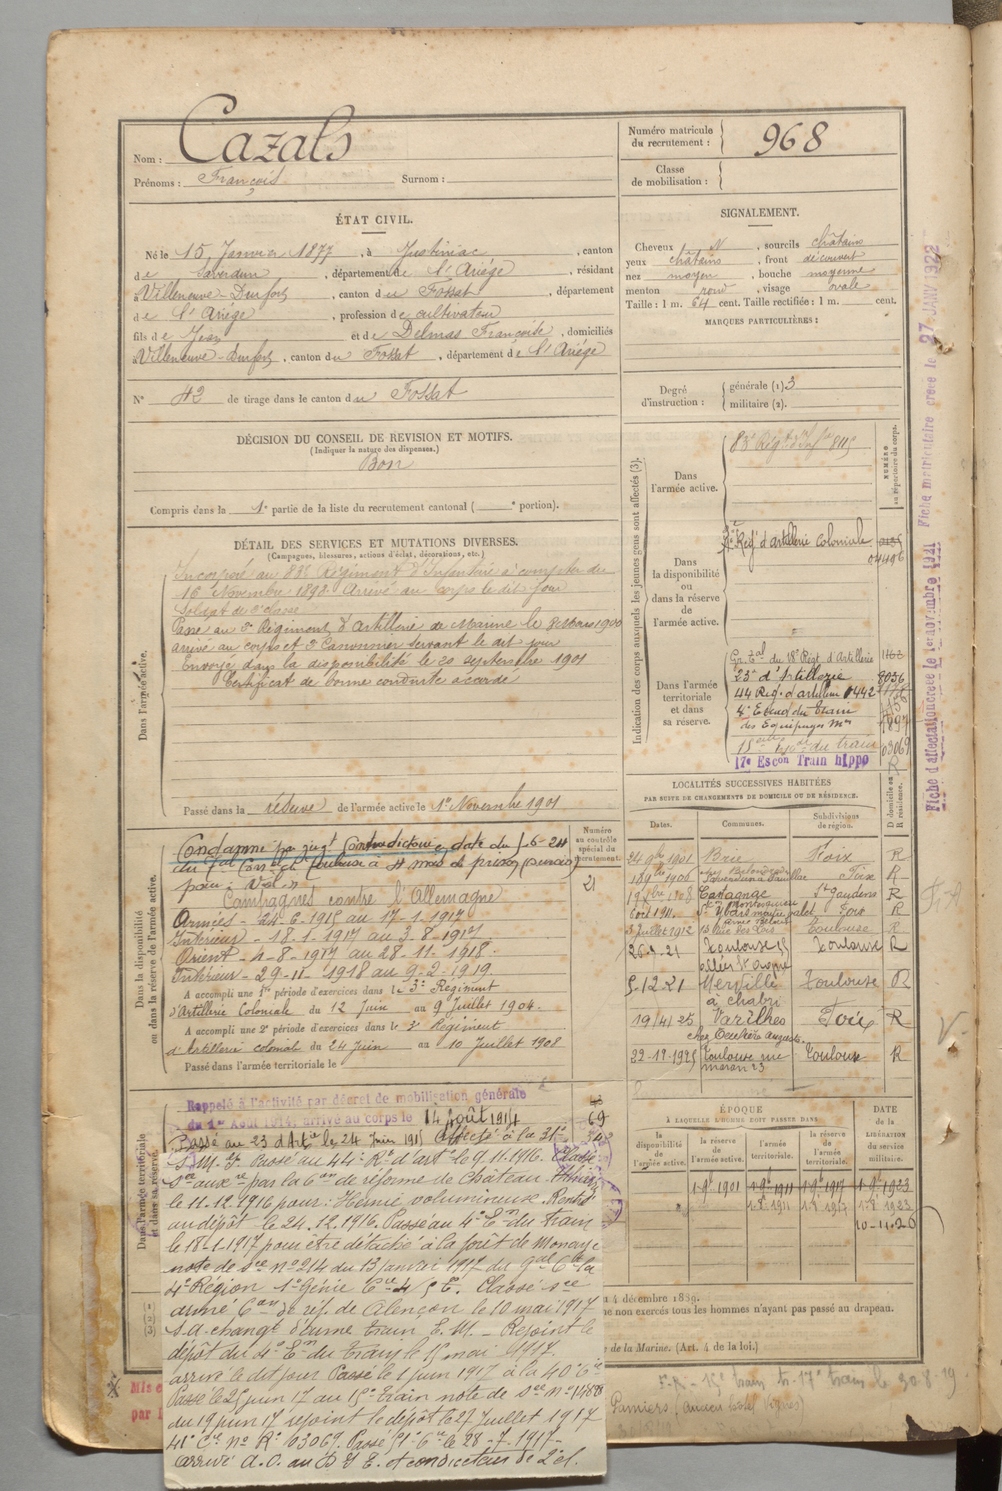 Nom : Cazals
Prénoms : François Surnom :
Numéro matricule du recrutement : 968
Classe de mobilisation :
ÉTAT CIVIL.
Né le 15 Janvier 1877, à Justiniac, canton
de Saverdun, département de l'Ariège, résidant
à Villeneuve-Durfort, canton du Fossat, département
de l'Ariège, profession de cultivateur
fils de Jean et de Delmas Françoise, domiciliés
à Villeneuve-Durfort, canton du Fossat, département de l'Ariège
N° 42 de tirage dans le canton du Fossat
SIGNALEMENT.
Cheveux N, sourcils châtains
yeux châtains, front découvert
nez moyen, bouche moyenne
menton rond, visage ovale
Taille : 1 m. 64 cent. Taille rectifiée : 1 m. cent.
MARQUES PARTICULIÈRES :
Degré d'instruction : générale (1) 3
militaire (2).
DÉCISION DU CONSEIL DE REVISION ET MOTIFS.
(Indiquer la nature des dispenses.)
Bon
Compris dans la 1e partie de la liste du recrutement cantonal ( e portion).
DÉTAIL DES SERVICES ET MUTATIONS DIVERSES.
(Campagnes, blessures, actions d'éclat, décorations, etc.)
Dans l'armée active.
Incorporé au 83e Régiment d'Infanterie à compter du
16 Novembre 1898. Arrivé au corps le dit jour
Soldat de 2e classe
Passé au 3e Régiment d'Artillerie de Marine le
arrivé au corps et 2e Canonnier servant le dit jour
Envoyé dans la disponibilité le 20 septembre 1901
Certificat de bonne conduite accordé
Passé dans la réserve de l'armée active le 1er Novembre 1901
Indication des corps auxquels les jeunes gens sont affectés (3).
NUMÉRO au répertoire du corps.
Dans l'armée active.
83e Régt d'Infie 8115
Dans la disponibilité ou dans la réserve de l'armée active.
Régt d'artillerie Coloniale
04496
Dans l'armée territoriale et dans sa réserve.
Gr. tal du 18e Régt d'Artillerie
23e d'Artillerie 8036
44 Reg. d'artillerie 0442
4e Escad du Train
des Equipages Mres
du train 03069
17e Escon Train hippo R
Fiche d'affectation créée le 1er novembre 1921 Fiche matriculaire créée le 27 JANV 1922
LOCALITÉS SUCCESSIVES HABITÉES
PAR SUITE DE CHANGEMENTS DE DOMICILE OU DE RÉSIDENCE.
Dates. Communes. Subdivisions de région. D domicile ou R résidence.
24 9bre 1901 Brie Foix R
Foix R
1908 Castagnac St Gaudens R
Foix R
3 Juillet 1912 Toulouse R
26-9-21 Toulouse Toulouse R
5-12-21 Merville Toulouse R
19/4/25 Varilhes Foix R
22-12-1925 Toulouse rue Toulouse R
Dans la disponibilité ou dans la réserve de l'armée active.
Numéro au contrôle spécial du recrutement.
21
Condamné par jugt Contradictoire, date du
à 4 mois de prison (sursis)
pour : Vol
Campagnes contre l'Allemagne
Armées - 24-6-1915 au 17-1-1917
Intérieur - 18-1-1917 au 3-8-1917
Orient - 4-8-1917 au 28-11-1918.
Intérieur - 29-11-1918 au 9-2-1919.
A accompli une 1re période d'exercices dans le 3e Régiment
d'Artillerie Coloniale du 12 Juin au 9 Juillet 1904.
A accompli une 2e période d'exercices dans le 3e Régiment
d'Artillerie colonial du 24 Juin au 10 Juillet 1908
Passé dans l'armée territoriale le
Dans l'armée territoriale et dans sa réserve.
Rappelé à l'activité par décret de mobilisation générale
du 1er Août 1914, arrivé au corps le 14 Août 1914
69
Passé au 23 d'Artie le 24 Juin 1915 Affecté à la 21e
S.M.I. Passé au 44e Rt d'arte le 9.11.1916. Classé
sce auxre par la Con de réforme de Château-Thierry
le 11.12.1916 pour : Hernie volumineuse. Rentré
au dépôt le 24.12.1916. Passé au 4e En du train
le 18-1-1917 pour être détaché à la forêt de
note de sce n° 214 du 13 janvier 1917 du Gal Ct la
4e Région 1er Génie Cie 4/5 T. Classé sce
armé Con de réf. de Alençon le 10 mai 1917
S.A. changt d'arme train E.M. - Rejoint le
dépôt du 4e En du train le 15 mai 1917.
arrivé le dit jour Passé le 1 juin 1917 à la 40e Cie
Passé le 25 juin 17 au 15e train note de sce n° 14878
du 19 juin 17 rejoint le dépôt le 27 Juillet 1917
41e Cie n° Re 03069. Passé 51e Cie le 28-7-1917-
arrivé A.O. au D.T.E. et conducteur de 2e cl.
ÉPOQUE
À LAQUELLE L'HOMME DOIT PASSER DANS :
DATE de la LIBÉRATION du service militaire.
la disponibilité de l'armée active. la réserve de l'armée active. l'armée territoriale. la réserve de l'armée territoriale.
1-9e 1901 1-9e 1911 1-9e 1917 1-9e 1923
1-8 1911 1-8 1917 1-8 1923
10-11-26
(1)
(2)
(3)
4 décembre 1889.
non exercés tous les hommes n'ayant pas passé au drapeau.
de la Marine. (Art. 4 de la loi.)
Mis
par
15e train tr. 17e train le 30-8-19
Pamiers